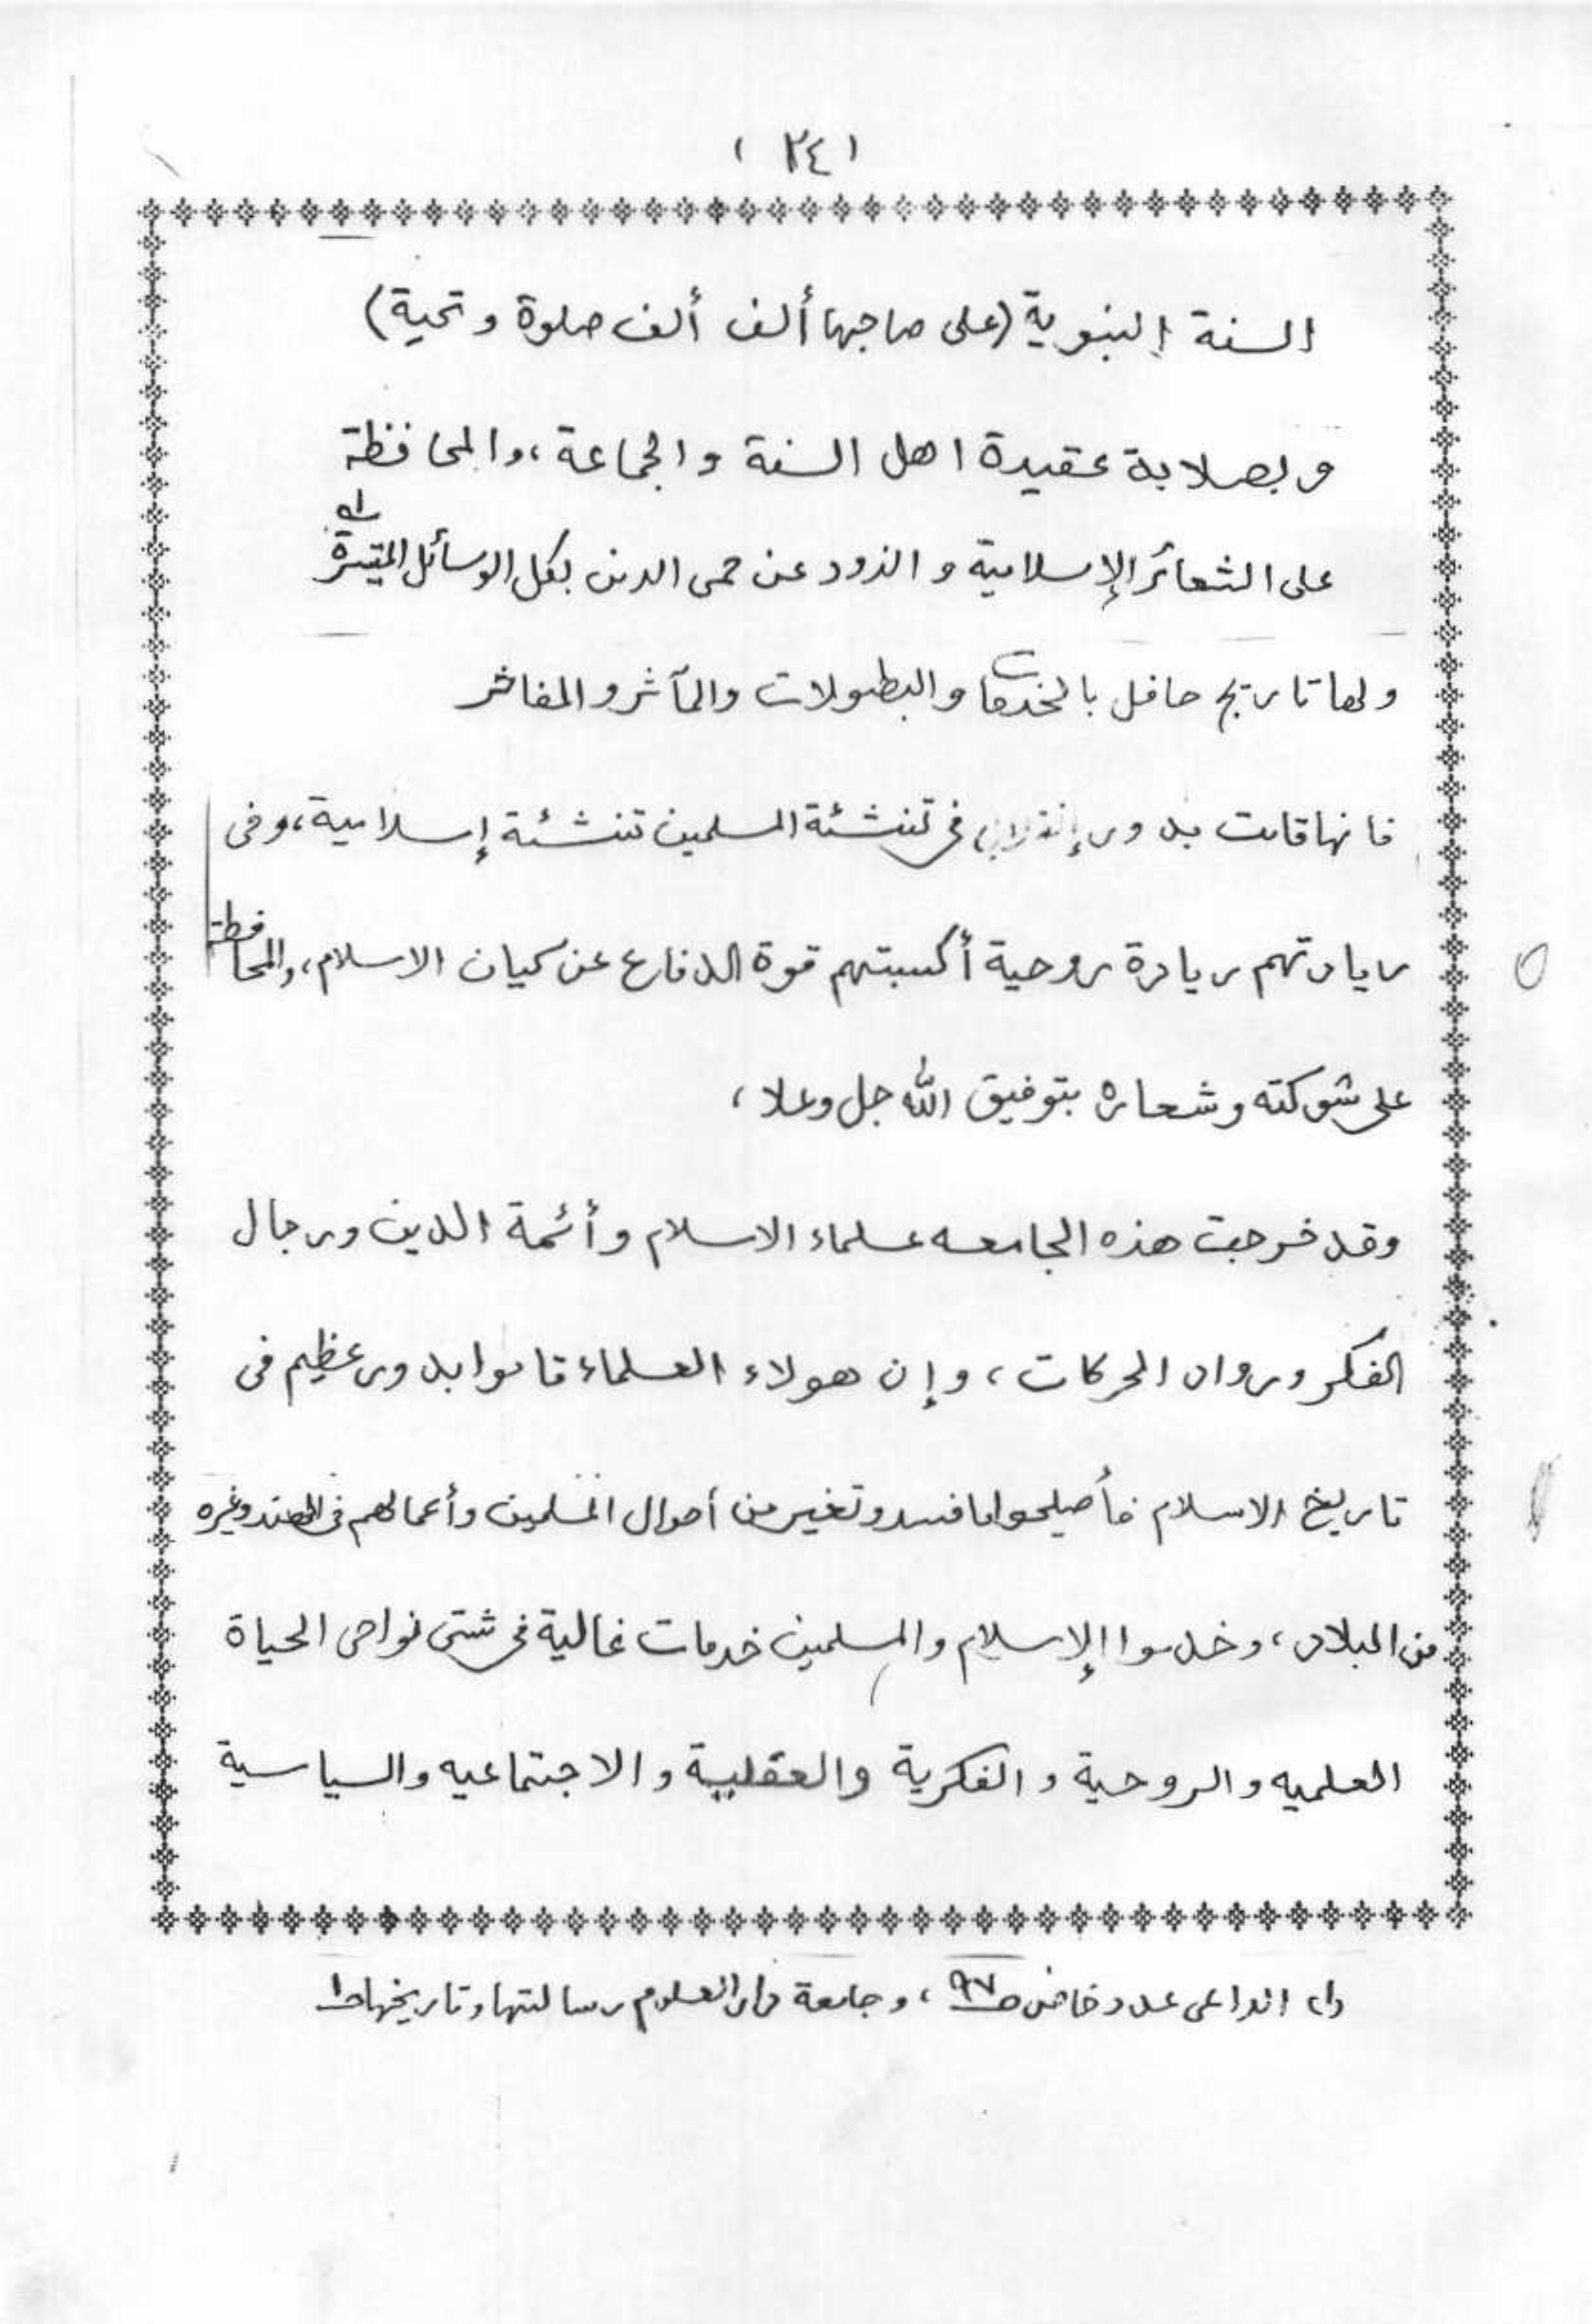 ( ٢٤ )
السنة النبوية (على صاحبها ألف ألف صلوة وتحية)
وبصلابة عقيدة اهل السنة والجماعة، والمحافظة
على الشعائر الإسلامية والذود عن حمى الدين بكل الوسائل المتيسرة
ولها تاريخ حافل بالخدمات والبطولات والمآثر والمفاخر
فانها قامت بدور في تنشئة المسلمين تنشئة إسلامية، وفى
ريادتهم ريادة روحية أكسبتهم قوة الدفاع عن كيان الاسلام، والمحافظة
على شوكته وشعاره بتوفيق الله جل وعلا،
وقد خرجت هذه الجامعه علماء الاسلام وأئمة الدين ورجال
الفكر ورواد الحركات، وإن هولاء العلماء قاموا بدور عظيم فى
تاريخ الاسلام فأصلحوا ما فسد وتغير من أحوال المسلمين وأعمالهم فى الهند وغيره
من البلاد، وخدموا الإسلام والمسلمين خدمات غالية فى شتى نواحى الحياة
العلميه والروحية والفكرية والعقلية والاجتماعيه والسياسية
(١) الداعى عدد خاص صـ٩٧، وجامعة دار العلوم رسالتها وتاريخها صـ١